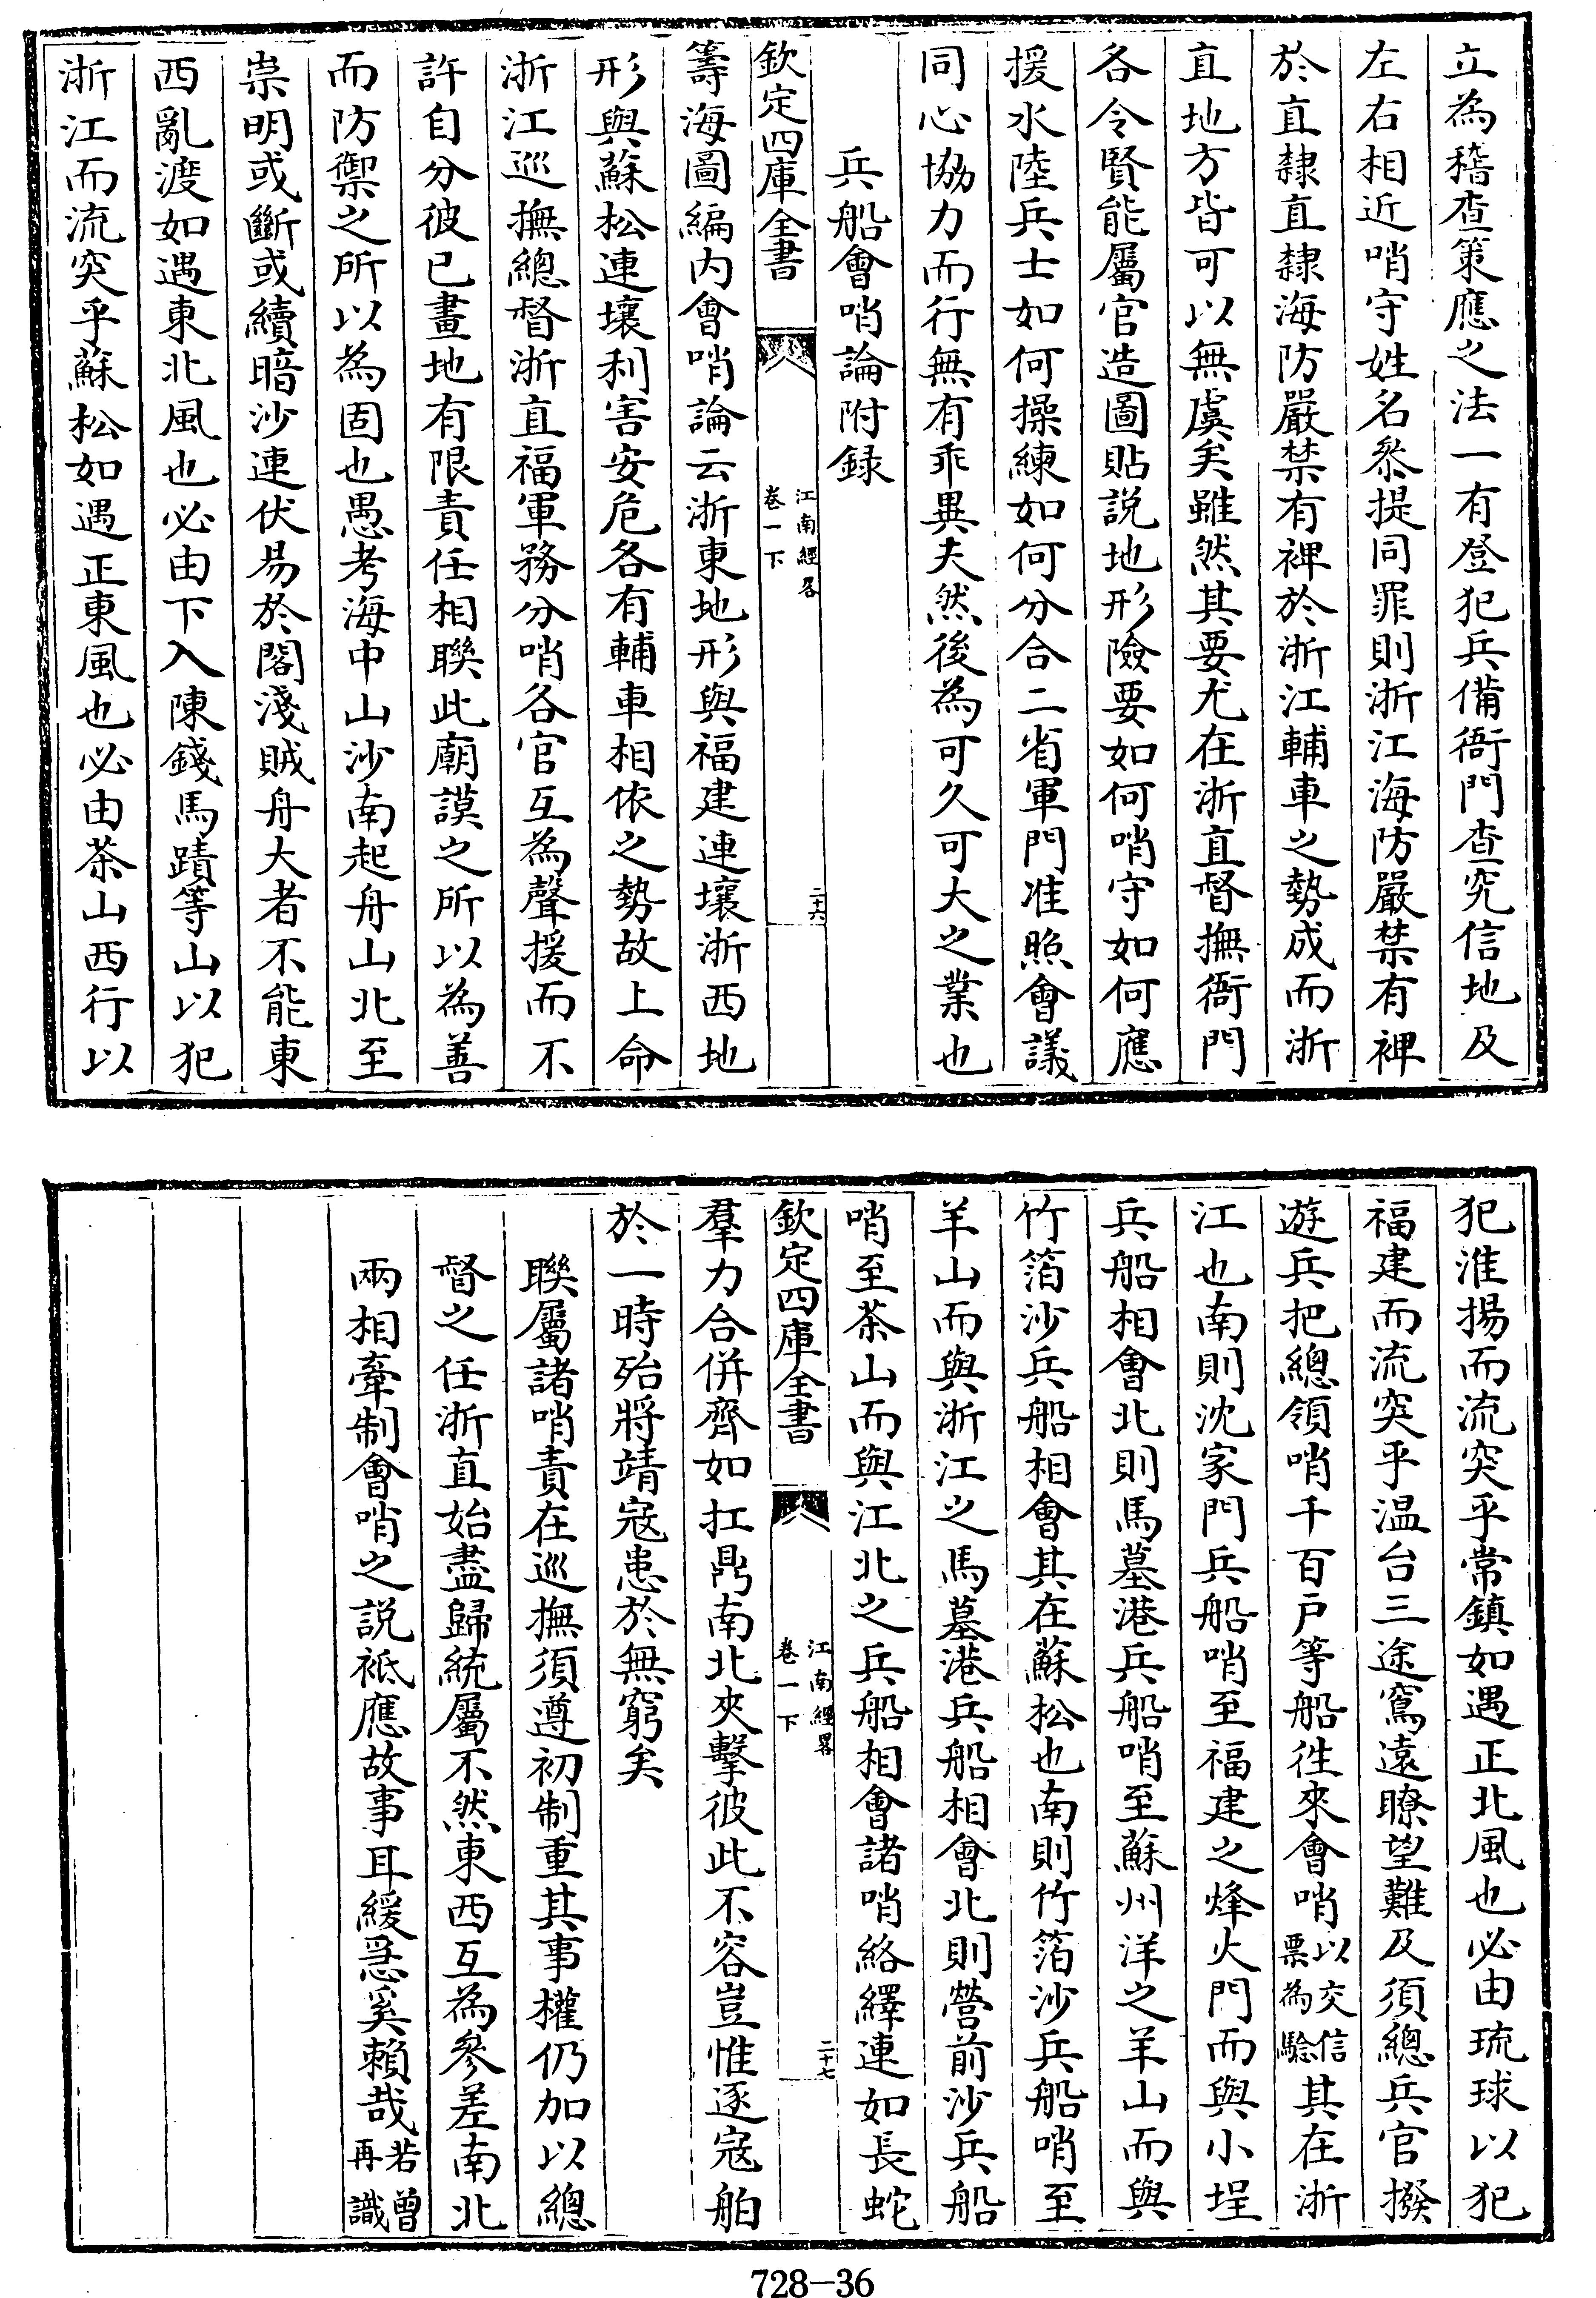 立為稽查策應之法一有登犯兵備衙門查究信地及
左右相近哨守姓名叅提同罪則浙江海防嚴禁有裨
於直隸直隸海防嚴禁有裨於浙江輔車之勢成而浙
直地方皆可以無虞矣雖然其要尤在浙直督撫衙門
各令賢能屬官造圖貼説地形險要如何哨守如何應
援水陸兵士如何操練如何分合二省軍門准照會議
同心協力而行無有乖異夫然後為可久可大之業也
兵船會哨論附録
欽定四庫全書
江南經畧
卷一下
二十六
籌海圖編内會哨論云浙東地形與福建連壤浙西地
形與蘇松連壤利害安危各有輔車相依之勢故上命
浙江巡撫總督浙直福軍務分哨各官互為聲援而不
許自分彼已畫地有限責任相聯此廟謨之所以為善
而防禦之所以為固也愚考海中山沙南起舟山北至
崇明或斷或續暗沙連伏易於閣淺賊舟大者不能東
西亂渡如遇東北風也必由下入陳錢馬蹟等山以犯
浙江而流突乎蘇松如遇正東風也必由茶山西行以
犯淮揚而流突乎常鎮如遇正北風也必由琉球以犯
福建而流突乎温台三途窵遠瞭望難及須總兵官撥
遊兵把總領哨千百戸等船徃來會哨以交信票為驗其在浙
江也南則沈家門兵船哨至福建之烽火門而與小埕
兵船相會北則馬墓港兵船哨至蘇州洋之羊山而與
竹箔沙兵船相會其在蘇松也南則竹箔沙兵船哨至
羊山而與浙江之馬墓港兵船相會北則營前沙兵船
哨至茶山而與江北之兵船相會諸哨絡繹連如長蛇
欽定四庫全書
江南經畧
卷一下
二十七
羣力合併齊如扛鼎南北夾擊彼此不容豈惟逐寇舶
於一時殆將靖寇患於無窮矣
聯屬諸哨責在巡撫須遵初制重其事權仍加以總
督之任浙直始盡歸統屬不然東西互為參差南北
兩相牽制會哨之説袛應故事耳緩急奚賴哉若曾再識
728-36